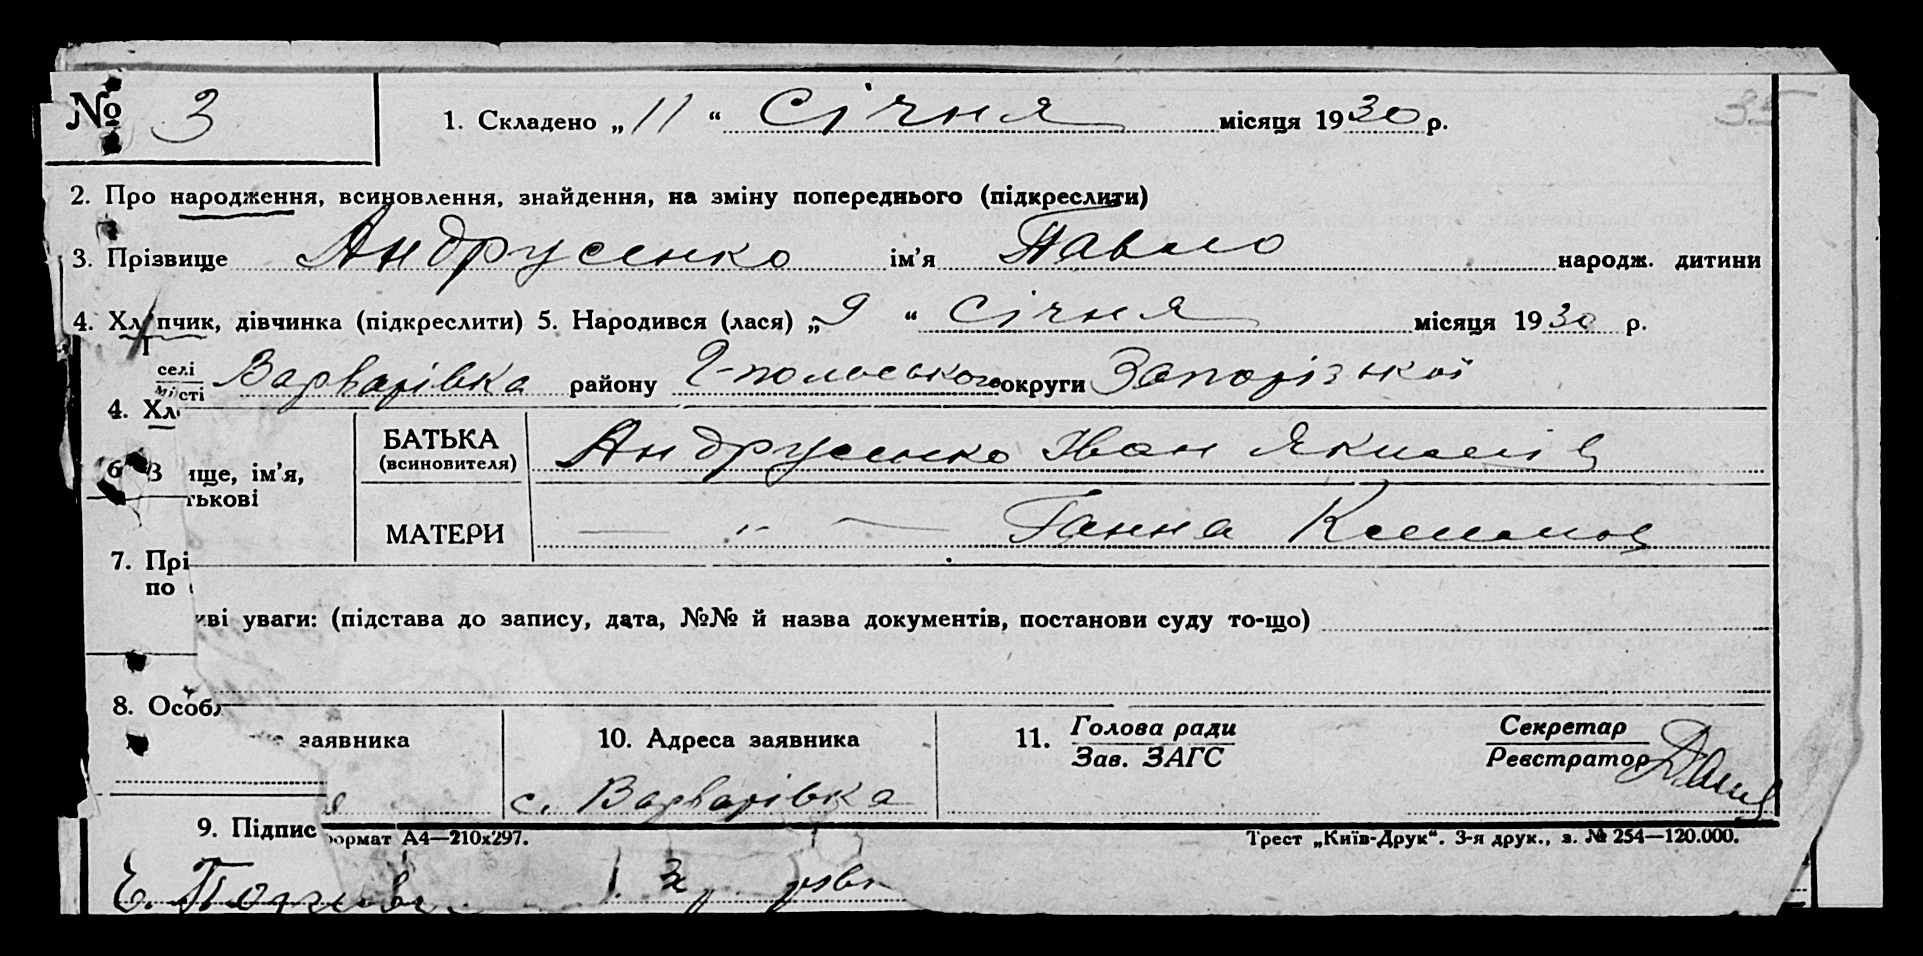 № 3 1. Складено „11“ Січня місяця 1930 р. 35
2. Про народження, всиновлення, знайдення, на зміну попереднього (підкреслити)
3. Прізвище Андрусенко ім’я Павло народж. дитини
4. Хлопчик, дівчинка (підкреслити) 5. Народився (лася) „9“ Січня місяця 1930 р.
селі
місті Варварівка району Г-польського округи Запорізької
4. Хл
БАТЬКА Андрусенко Іван Якимів
(всиновителя)
6 В ище, ім’я,
тькові
МАТЕРИ — „ — Ганна
7. Прі
по
ві уваги: (підстава до запису, дата, №№ й назва документів, постанови суду то-що)
8. Особл
заявника 10. Адреса заявника 11. Голова ради Секретар
Зав. ЗАГС Реєстратор
с. Варварівка
9. Підпис формат А4—210х297. Трест „Київ-Друк“. 3-я друк., з. № 254—120.000.